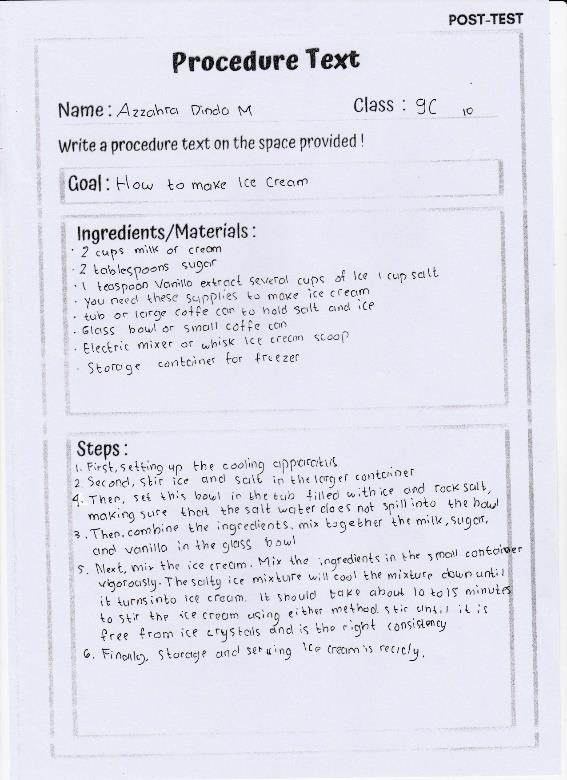 POST-TEST
Procedure Text
Name : Azzahra Dinda M
Class : 9C 10
Write a procedure text on the space provided !
Goal : How to make Ice Cream
Ingredients/Materials :
· 2 cups milk or cream
· 2 tablespoons sugar
· 1 teaspoon Vanilla extract several cups of Ice 1 cup salt
· you need these supplies to make ice cream
· tub or large coffe can to hold salt and ice
· Glass bowl or small coffe can
· Electric mixer or whisk Ice cream scoop
· Storage container for freezer
Steps :
1. First, setting up the cooling apparatus
2. Second, stir ice and salt in the larger container
4. Then, set this bowl in the tub filled with ice and rock salt,
making sure that the salt water does not spill into the bowl
3. Then, combine the ingredients. mix together the milk, sugar,
and vanilla in the glass bowl
5. Next, mix the ice cream. Mix the ingredients in the small container
vigorously. The salty ice mixture will cool the mixture down until
it turns into ice cream. It should take about 10 to 15 minutes
to stir the ice cream using either method stir until it is
free from ice crystals and is the right consistency
6. Finally, Storage and serving Ice Cream is ready.